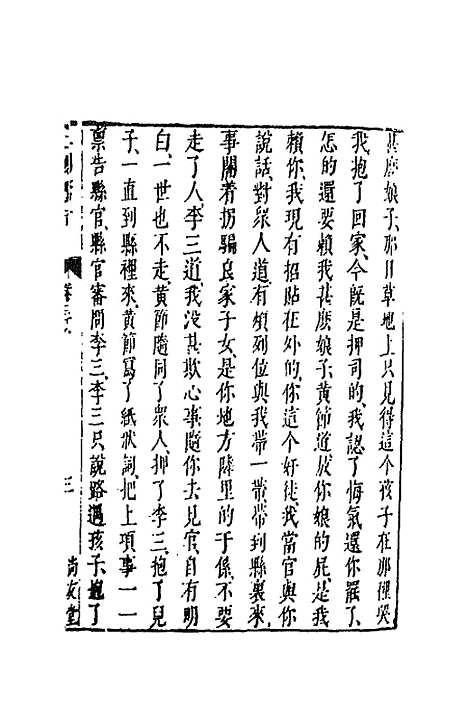 甚麽娘子、那日草地上只見得這个孩子在那裡哭
我、抱了回家、今旣是押司的、我認了悔氣還你罷了、
怎的還要賴我甚麽娘子、黃節道、放你娘的屁、是我
賴你、我現有招貼在外的、你這个奸徒、我當官與你
說話、對衆人道、有煩列位與我帶一帶、帶到縣裏來、
事關着拐騙良家子女、是你地方隣里的干係、不要
走了人、李三道、我没甚欺心事、隨你去見官、自有明
白、一世也不走、黃節隨同了衆人、押了李三、抱了兒
子、一直到縣裡來、黃節寫了紙狀詞、把上項事一一
禀告縣官、縣官審問李三、李三只說路遇孩子、抱了
三
尚友堂